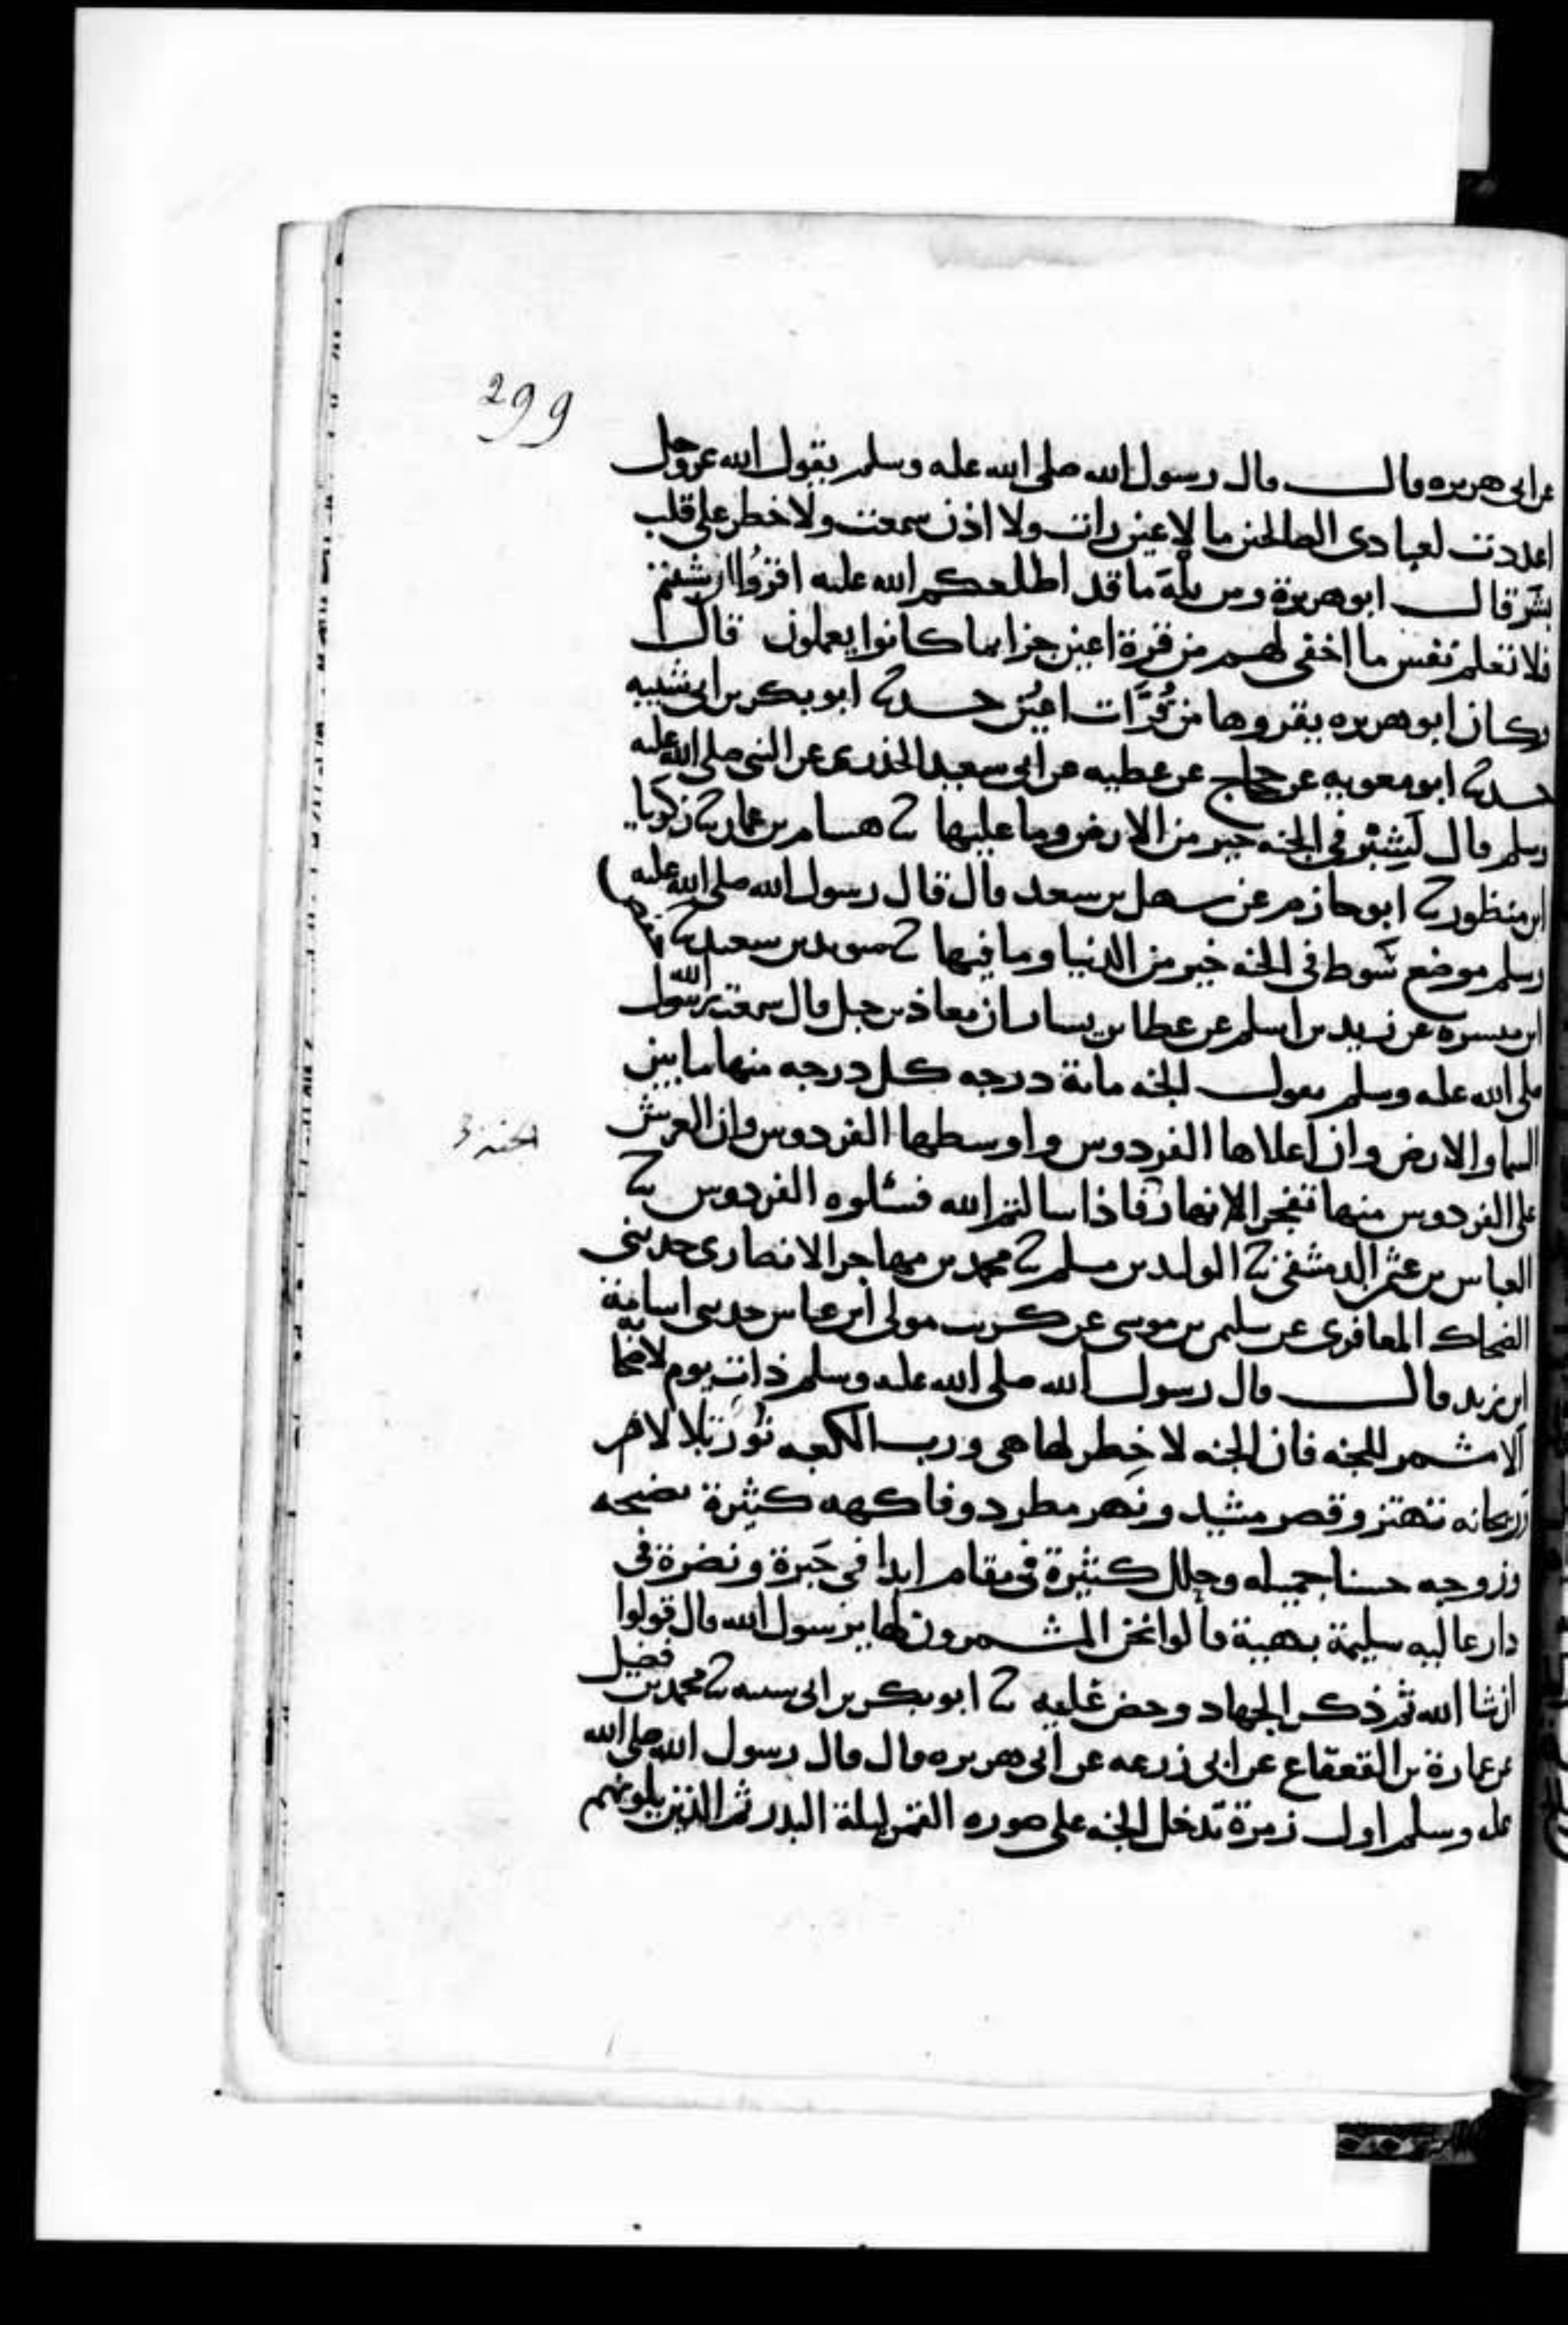 299
عن ابى هريره قال قال رسول الله صلى الله عليه وسلم يقول الله عز وجل
اعددت لعبادى الصالحين ما لا عين رات ولا اذن سمعت ولا خطر على قلب
بشر قال ابو هريرة ومن بَلْهَ ما قد اطلعكم الله عليه اقرؤُا ان شئتم
فلا تعلم نفس ما اخفى لهم من قرة اعين جزا بما كانوا يعملون قال
وكان ابو هريره يقروها من قُرَّات اعين حدثنا ابو بكر بن ابى شيبه
حدثنا ابو معويه عن حجاج عن عطيه عن ابى سعيد الخدرى عن النبى صلى الله عليه
وسلم قال لَشِبْر فى الجنه خير من الارض وما عليها ثنا هشام بن عمار ثنا زكريا
ابن منظور ثنا ابو حازم عن سهل بن سعد قال قال رسول الله صلى الله عليه
وسلم موضع سَوط فى الجنه خير من الدنيا وما فيها ثنا سويد بن سعيد ثنا حفص
ابن ميسره عن زيد بن اسلم عن عطا بن يسار ان معاذ بن جبل قال سمعت رسول الله
صلى الله عليه وسلم يقول الجنه مائة درجه كل درجه منها ما بين
السما والارض وان اعلاها الفردوس واوسطها الفردوس وان العرش
الجنه
على الفردوس منها تفجر الانهار فاذا سالتم الله فسئلوه الفردوس ثنا
العباس بن عثمن الدمشقى ثنا الوليد بن مسلم ثنا محمد بن مهاجر الانصارى حدثنى
الضحاك المعافرى عن سليمن بن موسى عن كريب مولى ابن عباس حدثنى اسامة
ابن زيد قال قال رسول الله صلى الله عليه وسلم ذات يوم لاصحابه
الا مشمر للجنه فان الجنه لا خطر لها هى ورب الكعبه نُور يتلالا لا
وريحانه تهتز وقصر مشيد ونهر مطرد وفاكهه كثيرة نضيجه
وزوجه حسنا جميله وحلل كثيرة فى مقام ابدا فى حَبرة ونضرة فى
دار عاليه سليمة بهية قالوا نحن المشمرون لها يرسول الله قال قولوا
ان شا الله ثم ذكر الجهاد وحض عليه ثنا ابو بكر بن ابى شيبه ثنا محمد بن فضيل
عن عمارة بن القعقاع عن ابى زرعه عن ابى هريره قال قال رسول الله صلى الله
عليه وسلم اول زمرة تدخل الجنه على صوره القمر ليلة البدر ثم الذين يلونهم